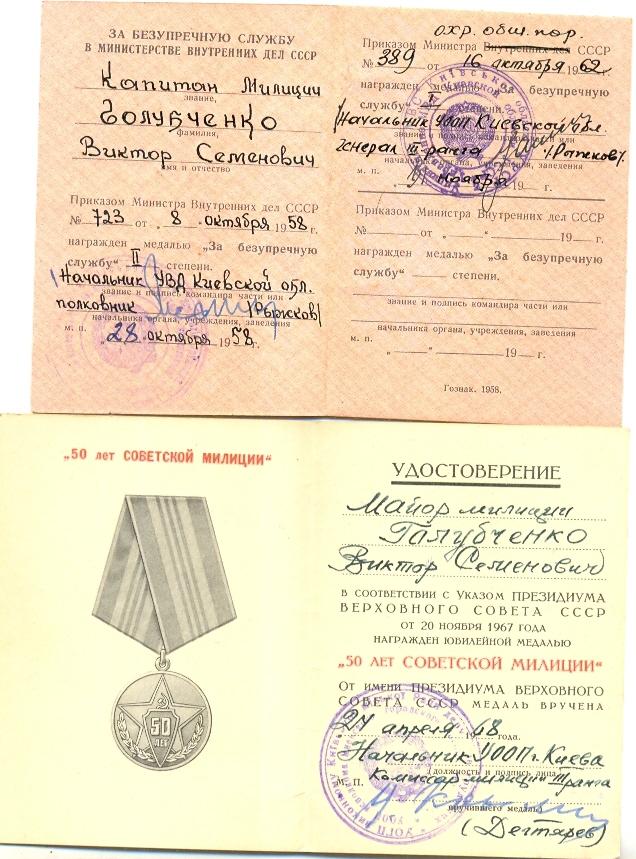 ЗА БЕЗУПРЕЧНУЮ СЛУЖБУ
В МИНИСТЕРСТВЕ ВНУТРЕННИХ ДЕЛ СССР
Капитан Милиции
звание,
Голубченко
фамилия,
Виктор Семенович
имя и отчество
Приказом Министра Внутренних дел СССР
№ 723 от „ 8 „ октября 1958 г.
награжден медалью „За безупречную
службу“ II степени.
Начальник УВД Киевской обл.
звание и подпись командира части или
полковник (Рыжков)
начальника органа, учреждения, заведения
м. п.
„28 „ октября 1958 г.
охр. общ. пор.
Приказом Министра Внутренних дел СССР
№ 389 от „ 16 „ октября 1962 г.
награжден медалью „За безупречную
службу“ I степени.
Начальник УООП Киевской обл.
звание и подпись командира части или
генерал III ранга (Рыжков)
начальника органа, учреждения, заведения
м. п.
ноября
Приказом Министра Внутренних дел СССР
№ от „ “ 19 г.
награжден медалью „За безупречную
службу“ степени.
звание и подпись командира части или
начальника органа, учреждения, заведения
м. п.
„ “ 19 г.
Гознак. 1958.
„50 лет СОВЕТСКОЙ МИЛИЦИИ“
50
ЛЕТ
УДОСТОВЕРЕНИЕ
Майор милиции
Голубченко
Виктор Семенович
В СООТВЕТСТВИИ С УКАЗОМ ПРЕЗИДИУМА
ВЕРХОВНОГО СОВЕТА СССР
ОТ 20 НОЯБРЯ 1967 ГОДА
НАГРАЖДЕН ЮБИЛЕЙНОЙ МЕДАЛЬЮ
„50 ЛЕТ СОВЕТСКОЙ МИЛИЦИИ“
ОТ ИМЕНИ ПРЕЗИДИУМА ВЕРХОВНОГО
СОВЕТА СССР МЕДАЛЬ ВРУЧЕНА
27 апреля 1968 года.
Начальник УООП г. Киева
(должность и подпись лица,
М. П. Комиссар милиции III ранга
вручившего медаль)
(Дегтярев)